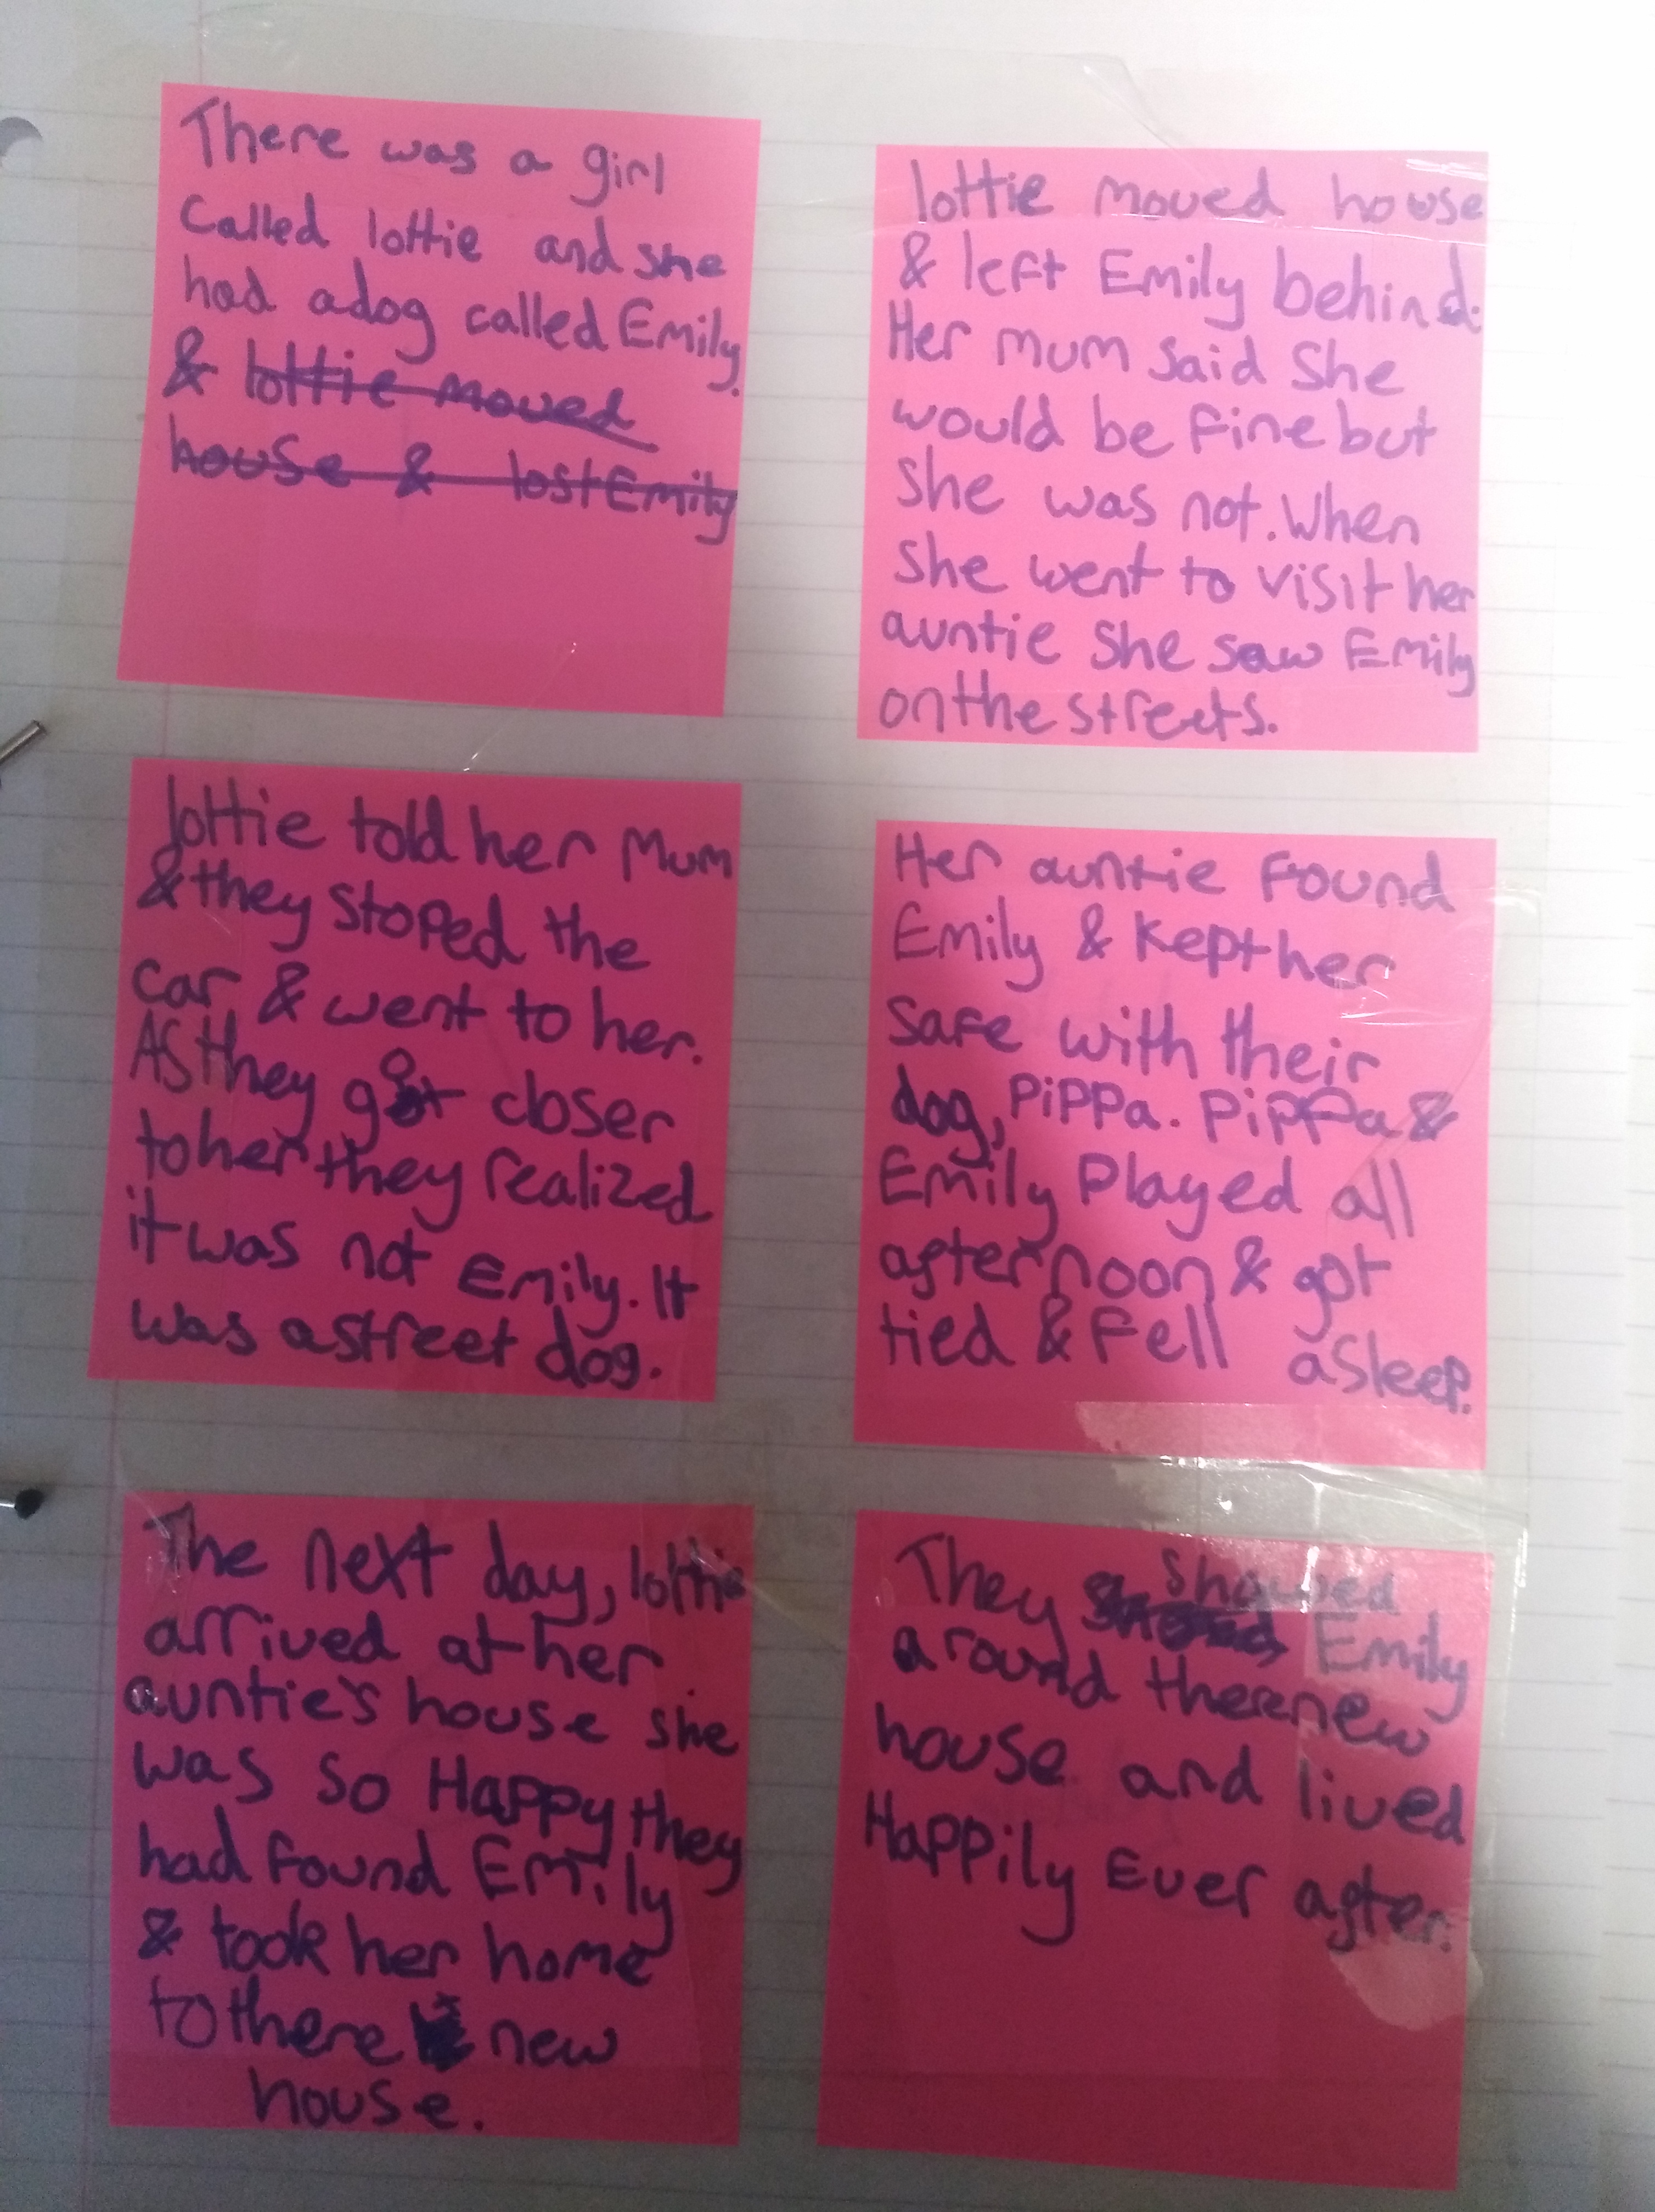 There was a girl
Called lottie and she
had a dog called Emily.
& lottie moved
house & lost Emily
lottie moved house
& left Emily behind.
Her mum said she
would be fine but
she was not. When
she went to visit her
auntie she saw Emily
on the streets.
lottie told her Mum
& they stoped the
car & went to her.
As they got closer
to her they realized
it was not Emily. It
was a street dog.
Her auntie found
Emily & kept her
safe with their
dog, Pippa. Pippa &
Emily Played all
afternoon & got
tied & fell asleep.
The next day, lottie
arrived at her
auntie's house she
was so Happy they
had found Emily
& took her home
to there new
house.
They showed Emily
around there new
house and lived
Happily Ever after.